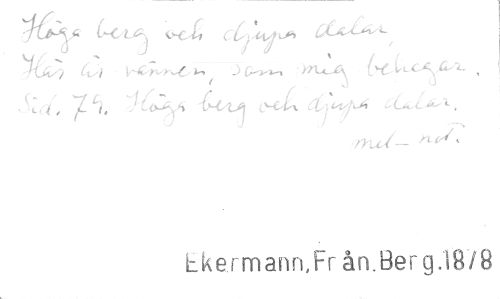 Höga berg och djupa dalar,
Här är vännen, som mig behagar.
Sid. 79. Höga berg och djupa dalar.
mel-not.
Ekermann,Från.Berg.1878